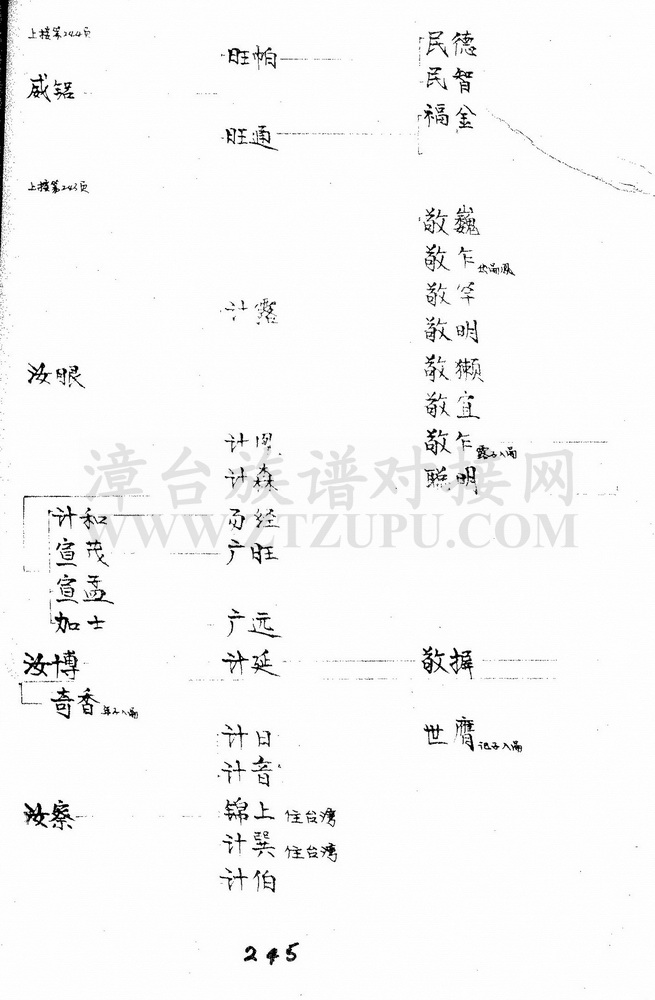 上接第244页
旺帕 民德
民智
威铝
福金
旺通
上接第243页
敬巍
敬乍
敬竿
计露
敬明
汝眼 敬獭
敬宜
计恩 敬乍 露子入嗣
计森 聪明
漳台族谱对接网
WWW.ZTZUPU.COM
计和 历经
宣茂 广旺
宣孟
加士 广远
汝博 计延 敬摒
奇香
计日 世膺
计音
汝察 锦上 住台湾
计巽 住台湾
计伯
245